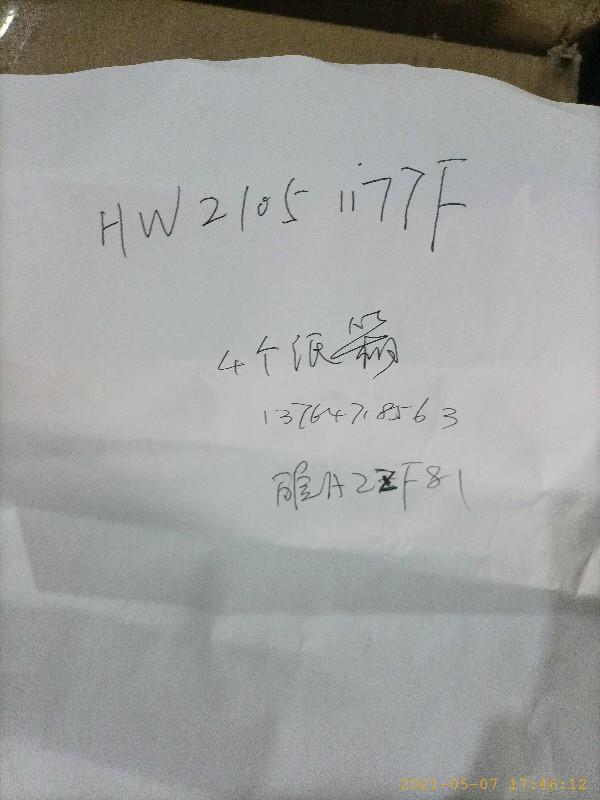 HW2105 1177F
4个纸箱
13764718563
A2ZF81
2021-05-07 17:46:12